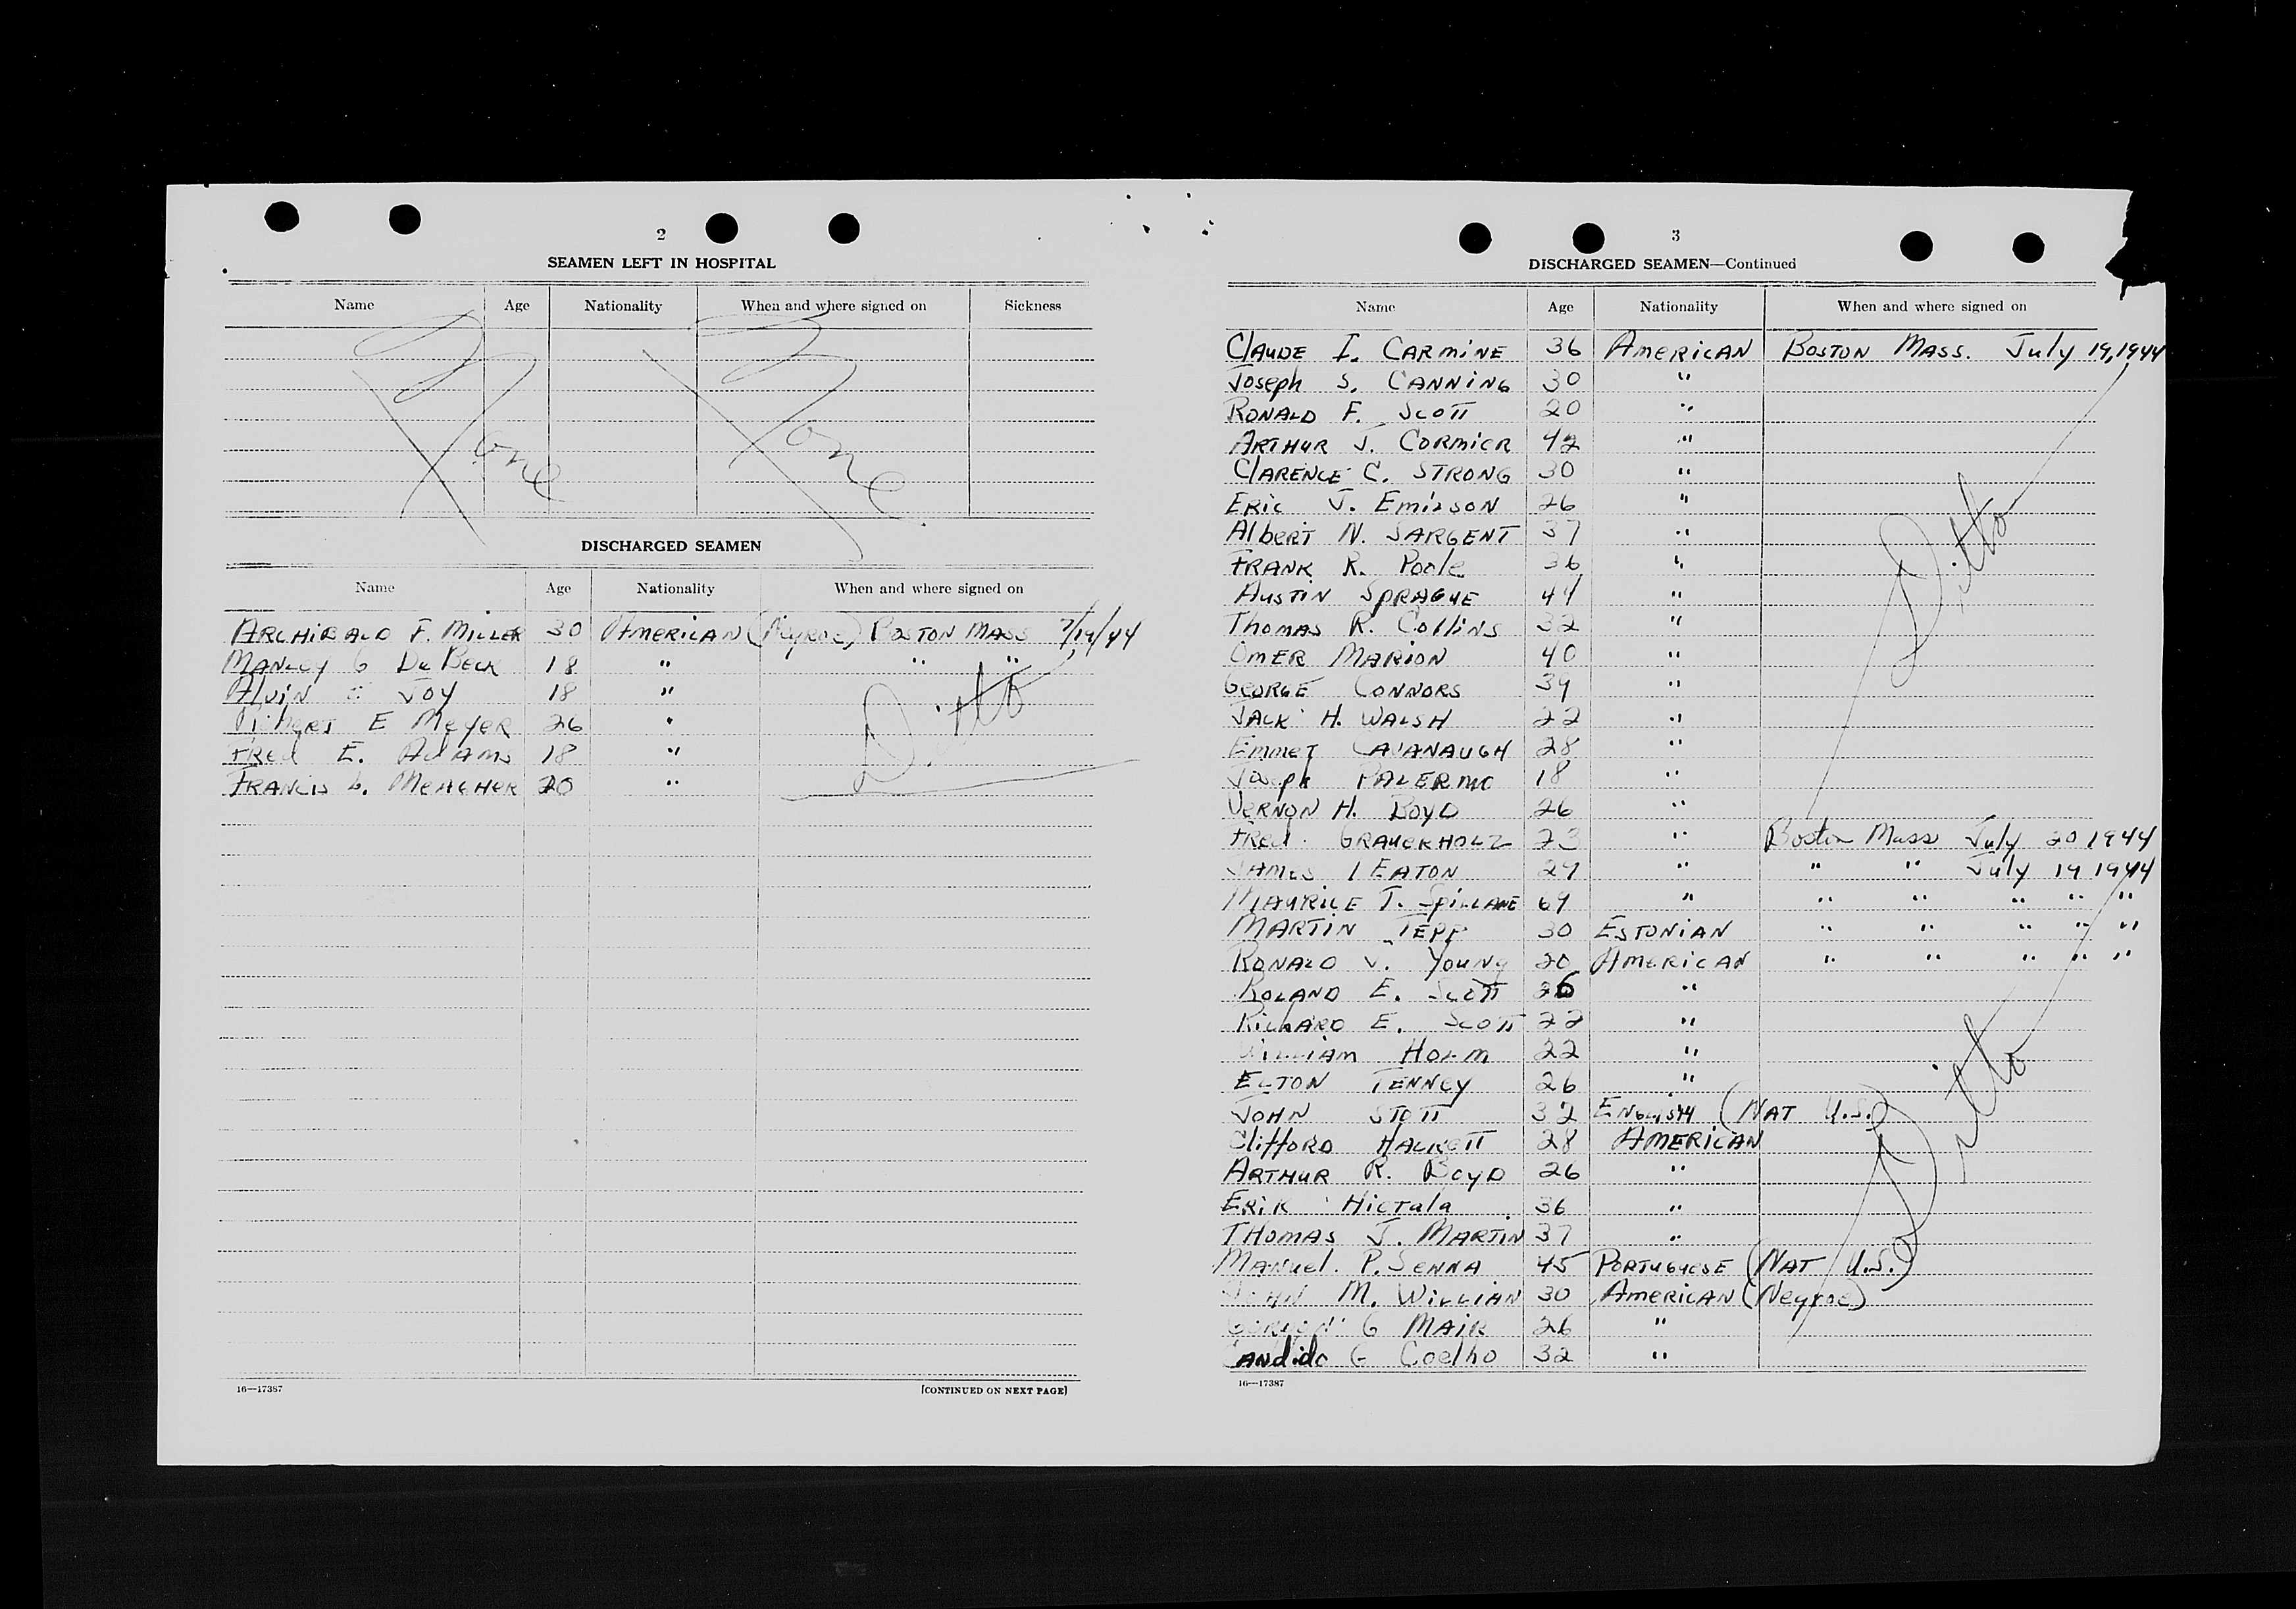 2
SEAMEN LEFT IN HOSPITAL
Name Age Nationality When and where signed on Sickness
None None
DISCHARGED SEAMEN
Name Age Nationality When and where signed on
ARCHIBALD F. MILLER 30 AMERICAN (Negroe) BOSTON MASS 7/19/44
MANLEY G Du BECK 18 " " "
Alvin E JOY 18 " Ditto
E MEYER 26 "
FRED E. ADAMS 18 "
FRANCIS L. MEAGHER 20 "
16—17387 [CONTINUED ON NEXT PAGE]
3
DISCHARGED SEAMEN—Continued
Name Age Nationality When and where signed on
ClAUDE I. CARMINE 36 AMERICAN BOSTON MASS. July 19, 1944
Joseph S. CANNING 30 "
RONALD F. SCOTT 20 "
ARTHUR J. CORMIER 42 "
ClARENCE C. STRONG 30 "
ERIC J. 26 "
AlbERT N. SARGENT 37 " Ditto
FRANK R. Poole 36 "
AUSTIN SPRAGUE 44 "
THOMAS R. Collins 32 "
OMER MARION 40 "
GEORGE CONNORS 34 "
JACK H. WALSH 22 "
EMMET CAVANAUGH 28 "
Joseph PALERMO 18 "
VERNON H. BOYD 26 "
FREd. GRAUERHOLZ 23 " Boston Mass July 20 1944
JAMES I EATON 29 " " " July 19 1944
MAURICE T. SPILLANE 69 " " " " " "
MARTIN TEPP 30 ESTONIAN " " " " "
RONALD V. YOUNG 20 AMERICAN " " " " "
ROLAND E. SCOTT 26 "
RICHARD E. SCOTT 22 "
WILLIAM HOLM 22 "
ELTON TENNEY 26 " Ditto
JOHN STOTT 32 ENGLISH (NAT U.S.)
CliffORD HACKETT 28 AMERICAN
ARTHUR R. BOYD 26 "
ERIK HIETALA 36 "
THOMAS J. MARTIN 37 "
MANUEL P. SENNA 45 PORTUGUESE (NAT U.S.)
JOHN M. WILLIAN 30 AMERICAN (Negroe)
G MAIR 26 "
CANdido G Coelho 32 "
16—17387